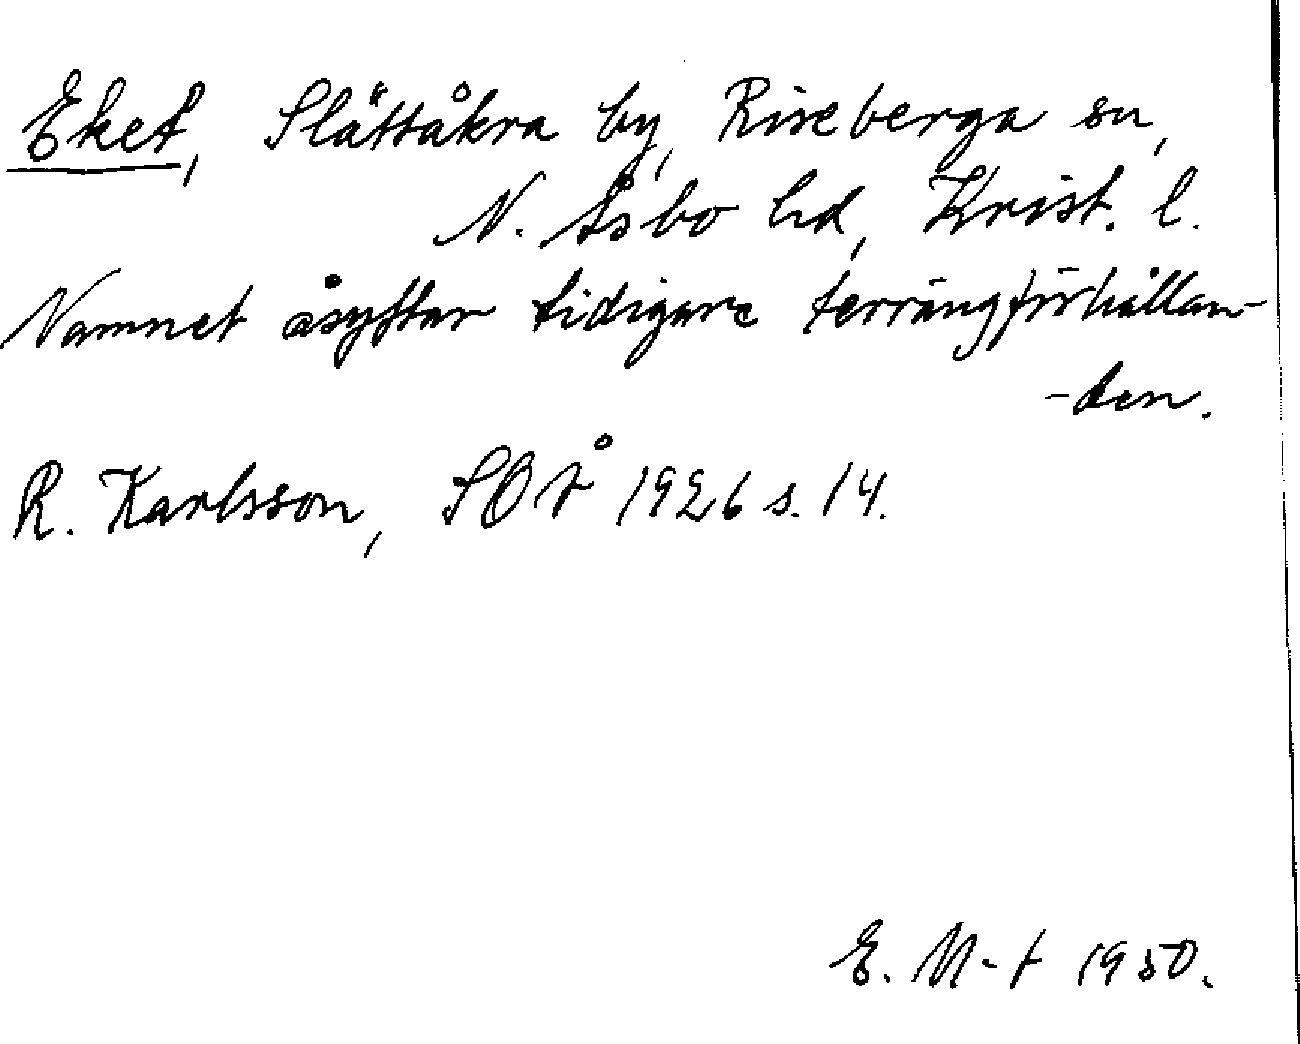 Eket, Slättåkra by, Riseberga sn,
N. Åsbo hd, Krist. l.
Namnet åsyftar tidigare terrängförhållan-
-den.
R. Karlsson, SOÅ 1926 s. 14.
E. M-t 1950.